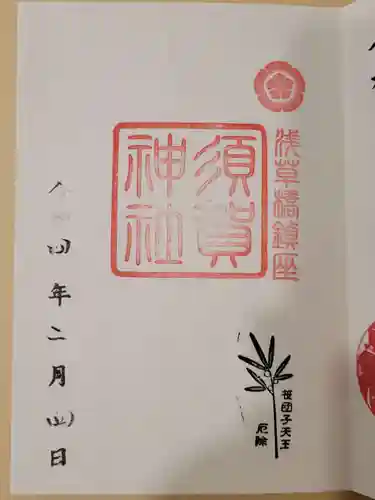 浅草橋鎮座
須賀
神社
笹団子天王
厄除
四年二月四日